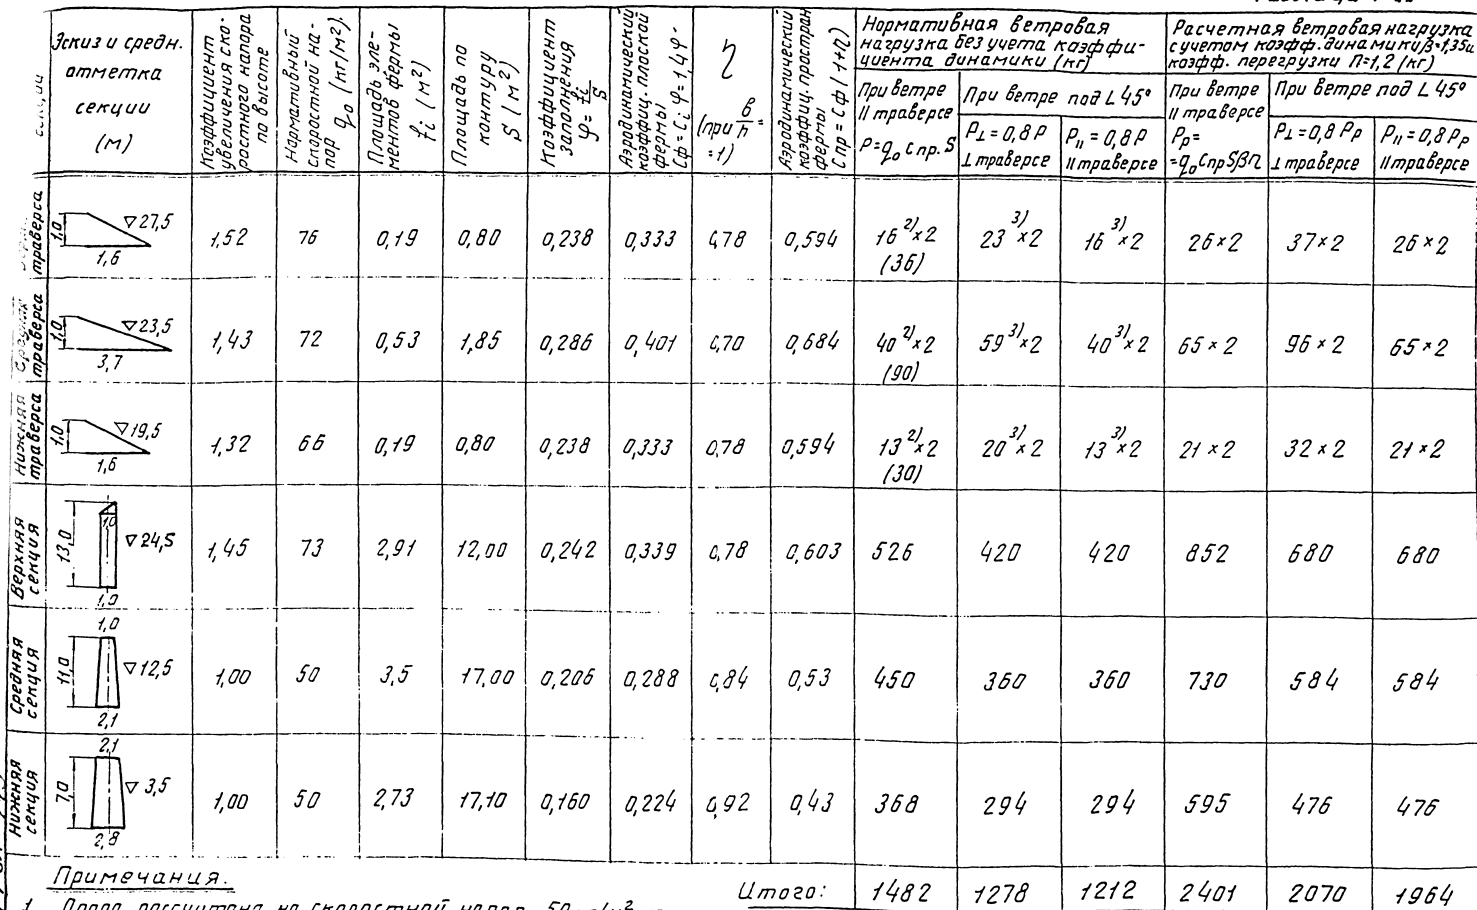 Эскиз и средн.
отметка
секции
(м)
Коэффициент
увеличения ско-
ростного напора
по высоте
Нормативный
скоростной на-
пор q₀ (кг/м²).
Площадь эле-
ментов фермы
fi (м²)
Площадь по
контуру
S (м²)
Коэффициент
заполнения
φ = fi/S
Аэродинамический
коэффиц. плоской
фермы
Cф = Ci φ = 1,4φ
η
(при в/h =
=1)
Аэродинамический
коэффиц. простран
фермы
Cпр = Cф (1+η)
Нормативная ветровая
нагрузка без учета коэффи-
циента динамики (кг)
При ветре
II траверсе
P=q₀ Cпр. S
При ветре под ∠ 45°
P⊥ = 0,8 P
⊥ траверсе
P₁₁ = 0,8 P
II траверсе
Расчетная ветровая нагрузка
с учетом коэфф. динамики β=1,35 и
коэфф. перегрузки П=1,2 (кг)
При ветре
II траверсе
Pр=
=q₀ Cпр S β п
При ветре под ∠ 45°
P⊥ = 0,8 Pр
⊥ траверсе
P₁₁ = 0,8 Pр
II траверсе
траверса
1,0 ▽27,5 1,6
1,52 76 0,19 0,80 0,238 0,333 0,78 0,594 16²⁾×2 23³⁾×2 16³⁾×2 26×2 37×2 26×2
(36)
Средняя
траверса
1,0 ▽23,5 3,7
1,43 72 0,53 1,85 0,286 0,401 0,70 0,684 40²⁾×2 59³⁾×2 40³⁾×2 65×2 96×2 65×2
(90)
Нижняя
траверса
1,0 ▽19,5 1,6
1,32 66 0,19 0,80 0,238 0,333 0,78 0,594 13²⁾×2 20³⁾×2 13³⁾×2 21×2 32×2 21×2
(30)
Верхняя
секция
13,0 1,0 ▽24,5 1,0
1,45 73 2,91 12,00 0,242 0,339 0,78 0,603 526 420 420 852 680 680
Средняя
секция
1,0 11,0 ▽12,5 2,1
1,00 50 3,5 17,00 0,206 0,288 0,84 0,53 450 360 360 730 584 584
Нижняя
секция
2,1 7,0 ▽3,5 2,8
1,00 50 2,73 17,10 0,160 0,224 0,92 0,43 368 294 294 595 476 476
Примечания.
Итого: 1482 1278 1212 2401 2070 1964